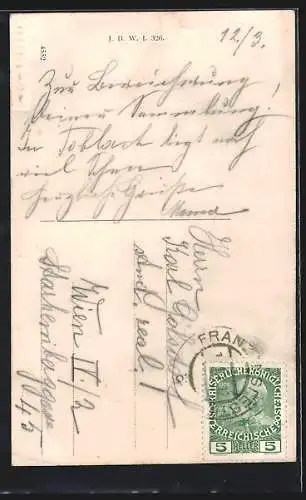 J. B. W. I. 326.
4532
12/3.
Zur Bereicherung
deiner Sammlung!
In Toblach liegt noch
viel Schnee
Herzliche Grüße
Herrn
Karl
stud. real.
Wien IV/2
No 45
FRANZ
KAISERLICHE KÖNIGLICHE
ÖSTERREICHISCHE POST
5 HELLER 5